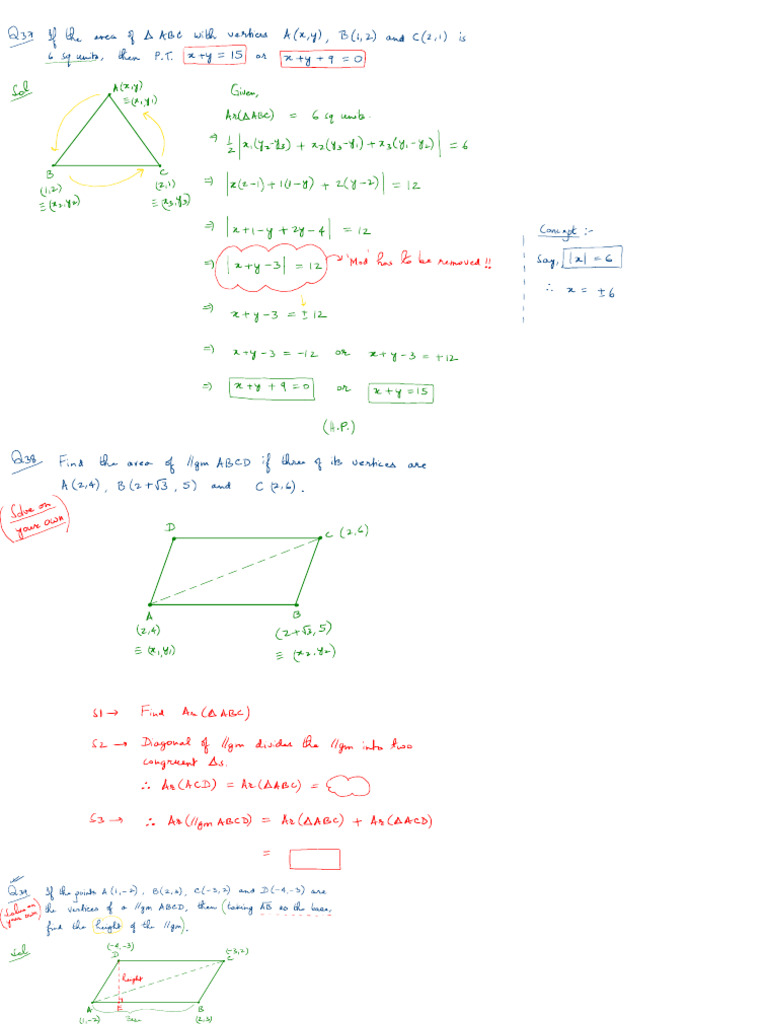 Q37 If the area of Δ ABC with vertices A(x,y), B(1,2) and C(2,1) is
6 sq units, then P.T. x+y = 15 or x+y+9 = 0
Sol
A(x,y)
≡(x₁,y₁)
B
(1,2)
≡(x₂,y₂)
C
(2,1)
≡(x₃,y₃)
Given,
Ar(ΔABC) = 6 sq units.
⇒ 1/2 |x₁(y₂-y₃) + x₂(y₃-y₁) + x₃(y₁-y₂)| = 6
⇒ |x(2-1) + 1(1-y) + 2(y-2)| = 12
⇒ |x+1-y+2y-4| = 12
⇒ |x+y-3| = 12 'Mod' has to be removed!!
⇒ x+y-3 = ±12
⇒ x+y-3 = -12 or x+y-3 = +12
⇒ x+y+9 = 0 or x+y = 15
(H.P.)
Concept :-
Say, |x| = 6
∴ x = ±6
Q38 Find the area of //gm ABCD if three of its vertices are
A(2,4), B(2+√3, 5) and C(2,6).
(Solve on
your own)
D
C (2,6)
A
(2,4)
≡ (x₁,y₁)
B
(2+√3, 5)
≡ (x₂,y₂)
S1 → Find Ar(ΔABC)
S2 → Diagonal of //gm divides the //gm into two
congruent Δs.
∴ Ar(ACD) = Ar(ΔABC) =
S3 → ∴ Ar(//gm ABCD) = Ar(ΔABC) + Ar(ΔACD)
=
Q39 If the points A(1,-2), B(2,3), C(-3,2) and D(-4,-3) are
the vertices of a //gm ABCD, then (taking AB as the base,
find the height of the //gm).
(Solve on
your own)
Sol
(-4,-3)
D
(-3,2)
C
height
A
(1,-2)
E
B
(2,3)